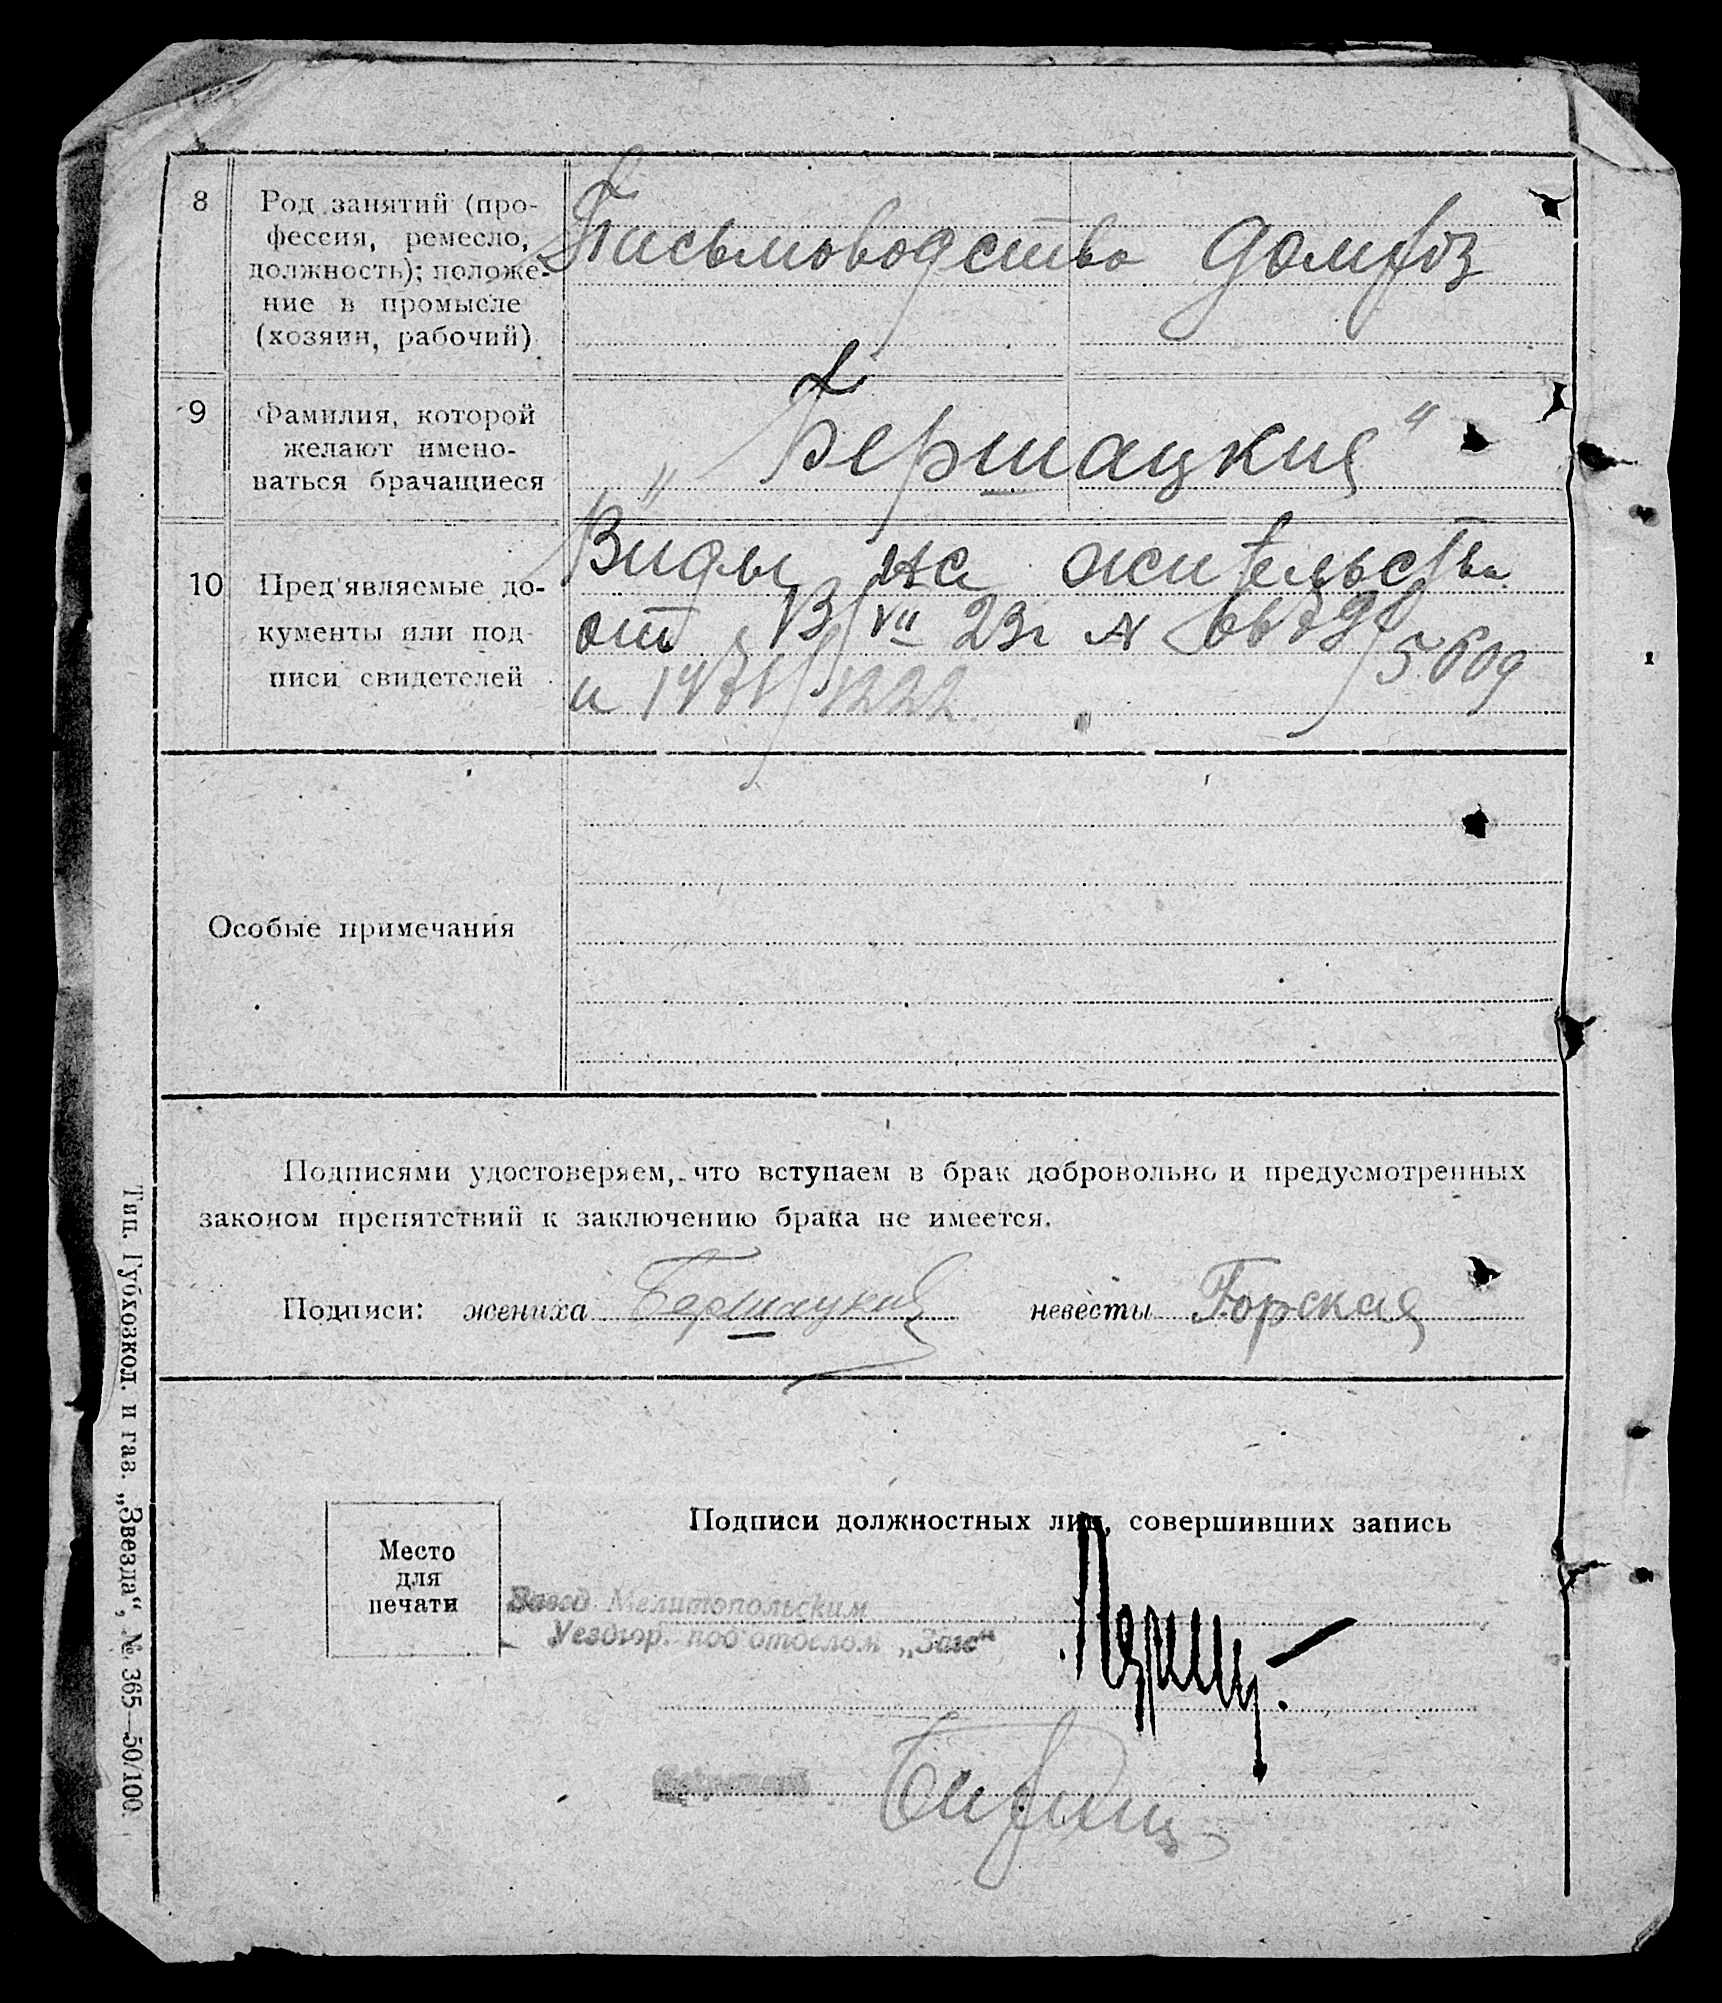 8
Род занятий (про-
фессия, ремесло,
должность); положе-
ние в промысле
(хозяин, рабочий)
Письмоводство
домхоз
9
Фамилия, которой
желают имено-
ваться брачащиеся
„ Бершацкие "
10
Пред'являемые до-
кументы или под-
писи свидетелей
Виды на жительство
от 13/VII 23г N
5609
и
Особые примечания
Подписями удостоверяем, что вступаем в брак добровольно и предусмотренных
законом препятствий к заключению брака не имеется.
Подписи: жениха Бершацкий невесты Горская
Подписи должностных лиц, совершивших запись
Место
для
печати
Завед Мелитопольским
Уездгор. под'отделом „Загс"
Тип. Губхозкол. и газ. „Звезда", № 365—50/100.